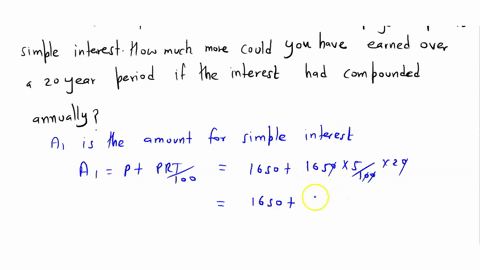 simple interest. How much more could you have earned over
a 20 year period if the interest had compounded
annually?
A₁ is the amount for simple interest
A₁ = P + PRT/100 = 1650 + 1650 × 5/100 × 20
= 1650 +